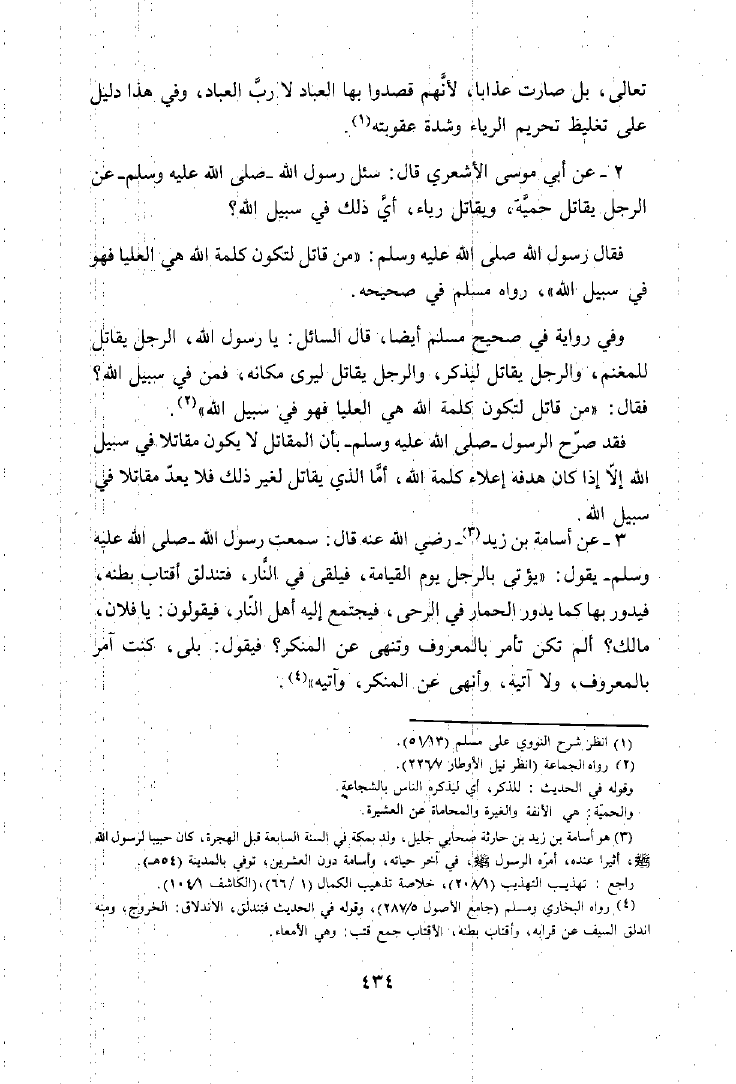 تعالى، بل صارت عذابا، لأنَّهم قصدوا بها العباد لا ربَّ العباد، وفي هذا دليل
على تغليظ تحريم الرياء وشدة عقوبته(١).
٢ ـ عن أبي موسى الأشعري قال: سئل رسول الله ـصلى الله عليه وسلمـ عن
الرجل يقاتل حميَّة، ويقاتل رياء، أيَّ ذلك في سبيل الله؟
فقال رسول الله صلى الله عليه وسلم: «من قاتل لتكون كلمة الله هي العليا فهو
في سبيل الله»، رواه مسلم في صحيحه.
وفي رواية في صحيح مسلم أيضا، قال السائل: يا رسول الله، الرجل يقاتل
للمغنم، والرجل يقاتل ليذكر، والرجل يقاتل ليرى مكانه، فمن في سبيل الله؟
فقال: «من قاتل لتكون كلمة الله هي العليا فهو في سبيل الله»(٢).
فقد صرّح الرسول ـصلى الله عليه وسلمـ بأن المقاتل لا يكون مقاتلا في سبيل
الله إلّا إذا كان هدفه إعلاء كلمة الله، أمَّا الذي يقاتل لغير ذلك فلا يعدّ مقاتلا في
سبيل الله.
٣ ـ عن أسامة بن زيد(٣)ـ رضي الله عنه قال: سمعت رسول الله ـصلى الله عليه
وسلمـ يقول: «يؤتى بالرجل يوم القيامة، فيلقى في النَّار، فتندلق أقتاب بطنه،
فيدور بها كما يدور الحمار في الرحى، فيجتمع إليه أهل النّار، فيقولون: يا فلان،
مالك؟ ألم تكن تأمر بالمعروف وتنهى عن المنكر؟ فيقول: بلى، كنت آمر
بالمعروف، ولا آتيه، وأنهى عن المنكر، وآتيه»(٤).
(١) انظر شرح النووي على مسلم (٥١/١٣).
(٢) رواه الجماعة (انظر نيل الأوطار ٢٢٦/٧).
وقوله في الحديث : للذكر، أي ليذكره الناس بالشجاعة.
والحميّة: هي الأنفة والغيرة والمحاماة عن العشيرة.
(٣) هو أسامة بن زيد بن حارثة صحابي جليل، ولد بمكة في السنة السابعة قبل الهجرة، كان حبيبا لرسول الله
ﷺ، أثيرا عنده، أمرّه الرسول ﷺ، في آخر حياته، وأسامة دون العشرين، توفي بالمدينة (٥٤هـ).
راجع : تهذيب التهذيب (٢٠٨/١)، خلاصة تذهيب الكمال (١ /٦٦)،(الكاشف ١٠٤/١).
(٤) رواه البخاري ومسلم (جامع الأصول ٢٨٧/٥)، وقوله في الحديث فتندلق، الاندلاق: الخروج، ومنه
اندلق السيف عن قرابه، وأقتاب بطنه، الأقتاب جمع قتب: وهي الأمعاء.
٤٣٤